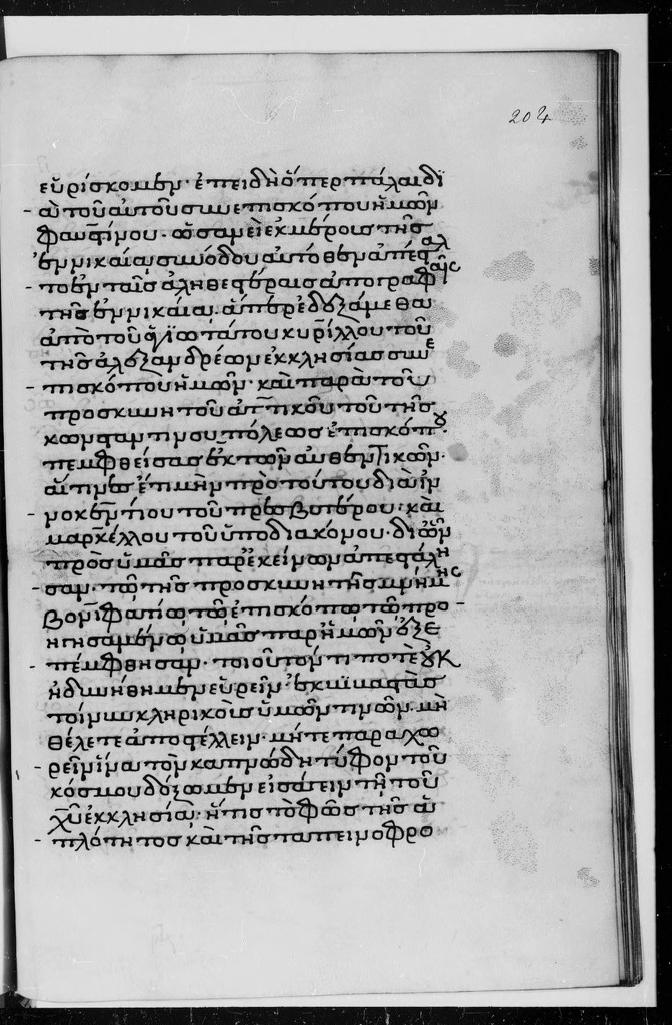 204
εὑρίσκομεν· ἐπειδὴ ὅπερ πάλαι δι
ὰ τοῦ αὐτοῦ συνεπισκόπου ἡμῶν
Φαυστίνου· ὡσαμεὶ ἐκ μέρους τῆς
ἐν νικαία συνόδου αὐτόθεν ἀπεσταλ
το ἐν ταῖς ἀληθεστέραις ἀπογραφαῖς
τῆς ἐν νικαία. ἅπερ ἐδεξάμεθα
ἀπὸ τοῦ ἁγιωτάτου κυρίλλου τοῦ
τῆς ἀλεξανδρέων ἐκκλησίας συνε
πισκόπου ἡμῶν· καὶ παρὰ τοῦ
προσκυνητοῦ ἀττικοῦ τοῦ τῆς
κωνσταντινουπόλεως ἐπισκόπου
πεμφθείσας ἐκ τῶν αὐθεντικῶν·
αἵτινες ἔτι μὴν πρὸ τούτου διὰ ἰν
νοκεντίου τοῦ πρεσβυτέρου· καὶ
μαρκέλλου τοῦ ὑποδιακόνου· δι ὧν
πρὸς ὑμᾶς παρ ἐκείνων ἀπεστάλη
σαν· τῶ τῆς προσκυνητῆς μνήμης
βονιφατίω τῶ ἐπισκόπω τῶ προ
ηγησαμένω ὑμᾶς παρ ἡμῶν ἐξε
πέμφθησαν· τοιοῦτόν τι ποτὲ οὐκ
ἠδυνήθημεν εὑρεῖν· ἐκβιβαστὰς
τοίνυν κληρικοὺς ὑμῶν τινῶν. μὴ
θέλετε ἀποστέλλειν· μήτε παραχω
ρεῖν ἵνα τὸν καπνώδη τύφον τοῦ
κόσμου δόξωμεν εἰσάγειν τῆ τοῦ
χῦ ἐκκλησία· ἥτις τὸ φῶς τῆς ἁ
πλότητος καὶ τῆς ταπεινοφρο